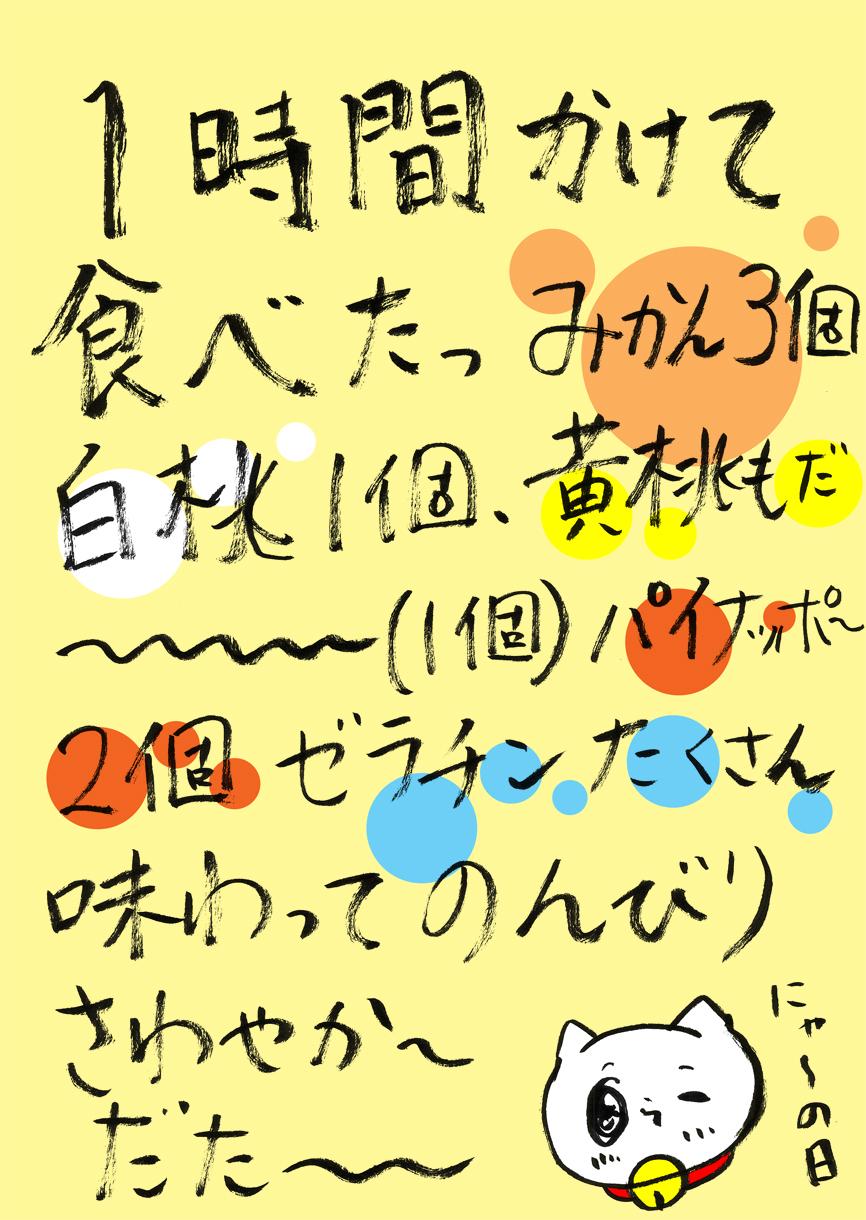 1時間かけて
食べたっ みかん3個
白桃1個、黄桃もだ
〜〜〜(1個) パイナッポ〜
2個 ゼラチンたくさん
味わってのんびり
さわやか〜
だた〜〜
にゃ〜の日